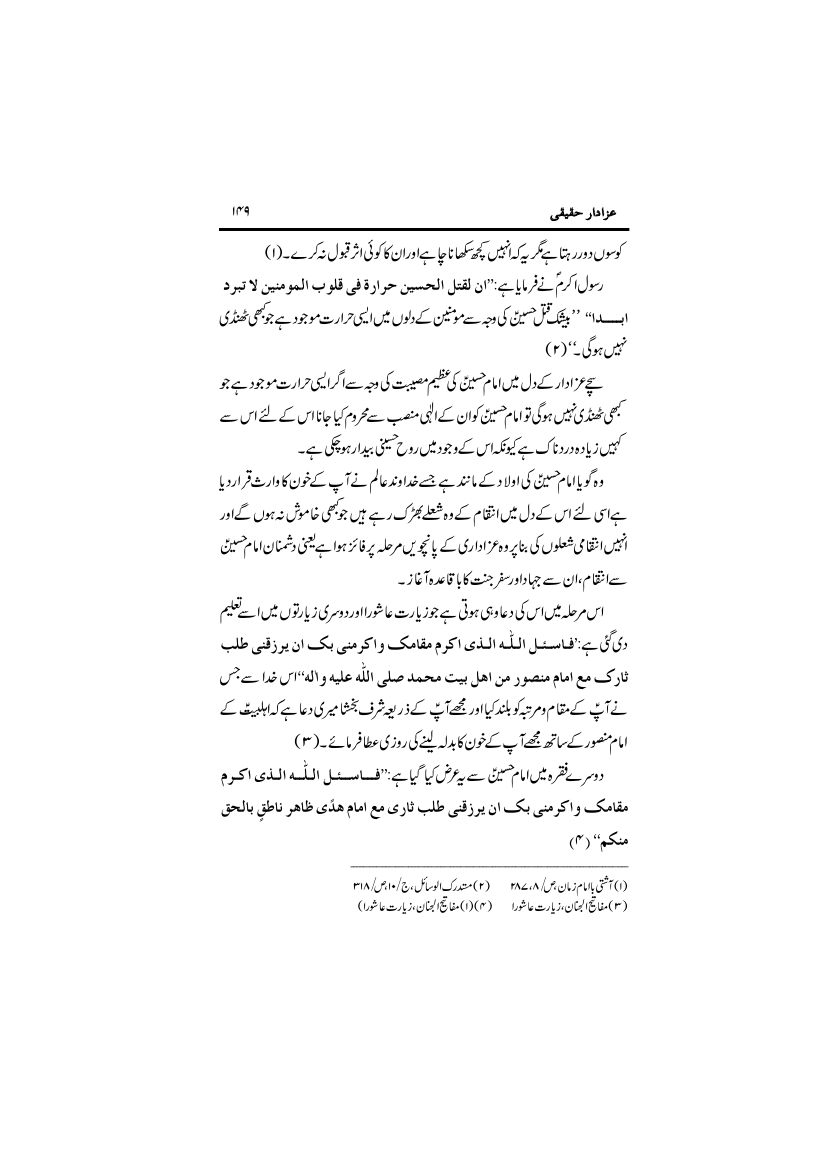 عزادار حقیقی ۱۴۹
کوسوں دور رہتا ہے مگر یہ کہ انہیں کچھ سکھانا چاہے اور ان کا کوئی اثر قبول نہ کرے۔(۱)
رسول اکرمؐ نے فرمایا ہے:”ان لقتل الحسین حرارة فی قلوب المومنین لا تبرد
ابــــدا“ ”بیشک قتل حسینؑ کی وجہ سے مومنین کے دلوں میں ایسی حرارت موجود ہے جو کبھی ٹھنڈی
نہیں ہوگی۔“(۲)
سچے عزادار کے دل میں امام حسینؑ کی عظیم مصیبت کی وجہ سے اگر ایسی حرارت موجود ہے جو
کبھی ٹھنڈی نہیں ہوگی تو امام حسینؑ کو ان کے الٰہی منصب سے محروم کیا جانا اس کے لئے اس سے
کہیں زیادہ دردناک ہے کیونکہ اس کے وجود میں روح حسینی بیدار ہوچکی ہے۔
وہ گویا امام حسینؑ کی اولاد کے مانند ہے جسے خداوند عالم نے آپ کے خون کا وارث قرار دیا
ہے اسی لئے اس کے دل میں انتقام کے وہ شعلے بھڑک رہے ہیں جو کبھی خاموش نہ ہوں گے اور
انہیں انتقامی شعلوں کی بنا پر وہ عزاداری کے پانچویں مرحلہ پر فائز ہوا ہے یعنی دشمنان امام حسینؑ
سے انتقام، ان سے جہاد اور سفر جنت کا باقاعدہ آغاز۔
اس مرحلہ میں اس کی دعا وہی ہوتی ہے جو زیارت عاشورا اور دوسری زیارتوں میں اسے تعلیم
دی گئی ہے:’فـاسـئـل الـلّٰـه الـذی اکـرم مقامـک واکرمنی بک ان یرزقنی طلب
ثارک مع امام منصور من اهل بیت محمد صلی اللّٰه علیه واٰله“اس خدا سے جس
نے آپؑ کے مقام و مرتبہ کو بلند کیا اور مجھے آپؑ کے ذریعہ شرف بخشا میری دعا ہے کہ اہلبیتؑ کے
امام منصور کے ساتھ مجھے آپ کے خون کا بدلہ لینے کی روزی عطا فرمائے۔(۳)
دوسرے فقرہ میں امام حسینؑ سے یہ عرض کیا گیا ہے:”فـــاســئــل الـلّٰــه الـذی اکـرم
مقامک واکرمنی بک ان یرزقنی طلب ثاری مع امام هدًی ظاهر ناطقٍ بالحق
منکم“ (۴)
(۱) آشتی با امام زمان ص/۸، ۲۸۷ (۲) مستدرک الوسائل، ج/۱۰، ص/۳۱۸
(۳) مفاتیح الجنان، زیارت عاشورا (۴)(۱) مفاتیح الجنان، زیارت عاشورا)